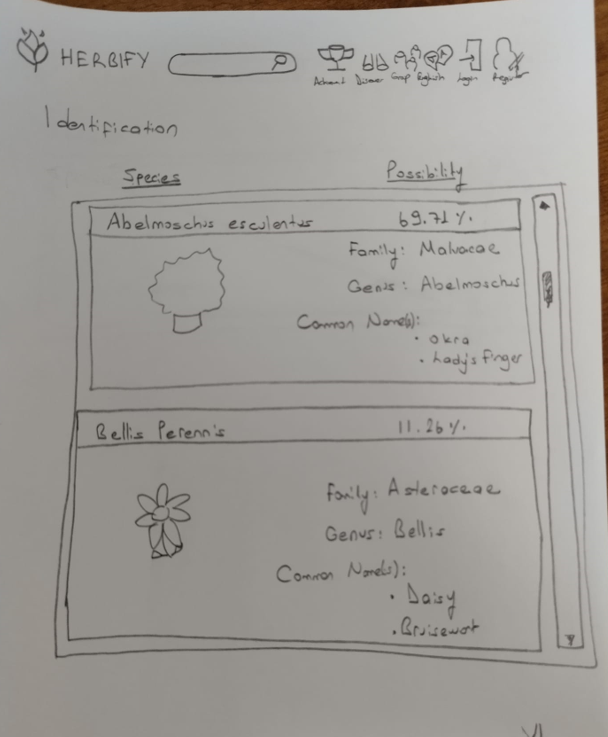 HERBIFY
Discover Group English Login
Identification
Species Possibility
Abelmoschus esculentus 69.71 %.
Family: Malvacae
Genus: Abelmoschus
Common Name(s):
• Okra
• Lady's Finger
Bellis Perennis 11.26 %.
Family: Asteroceae
Genus: Bellis
Common Name(s):
• Daisy
• Bruisewort